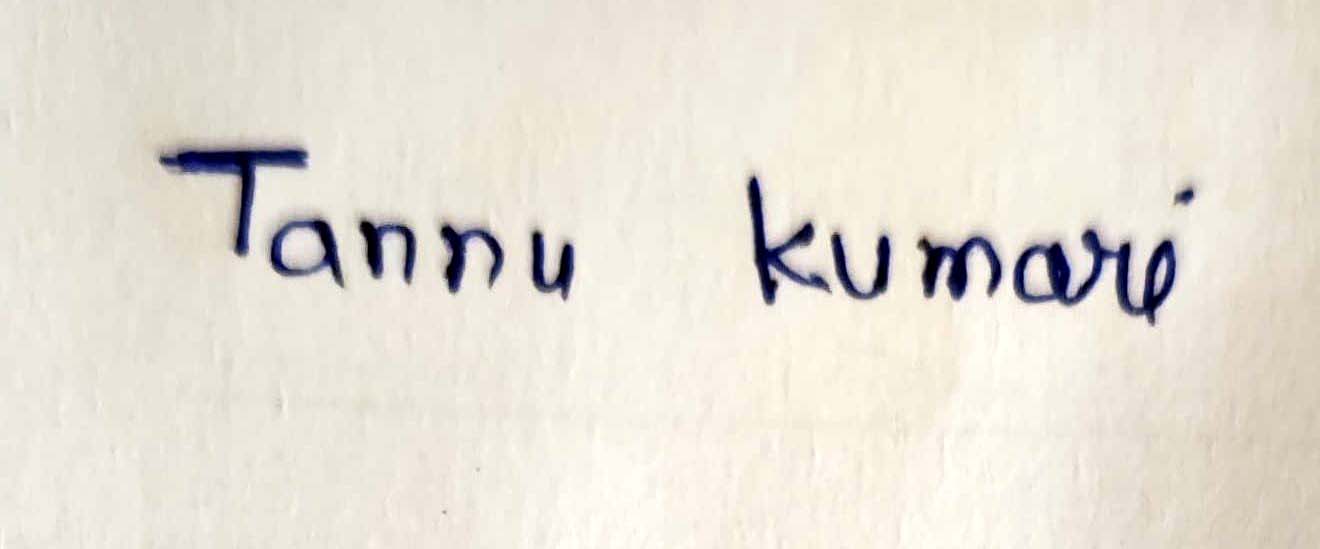 Tannu kumari